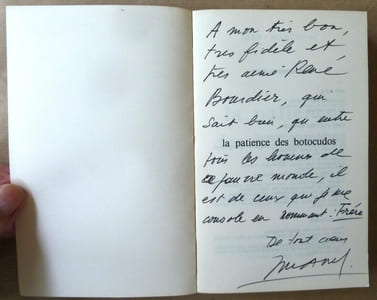 A mon très bon,
très fidèle et
très aimé René
Bourdier, qui
sait bien, qu'entre
la patience des botocudos
tous les hommes de
ce pauvre monde, il
est de ceux que je me
console en nommant : Frère
De tout cœur